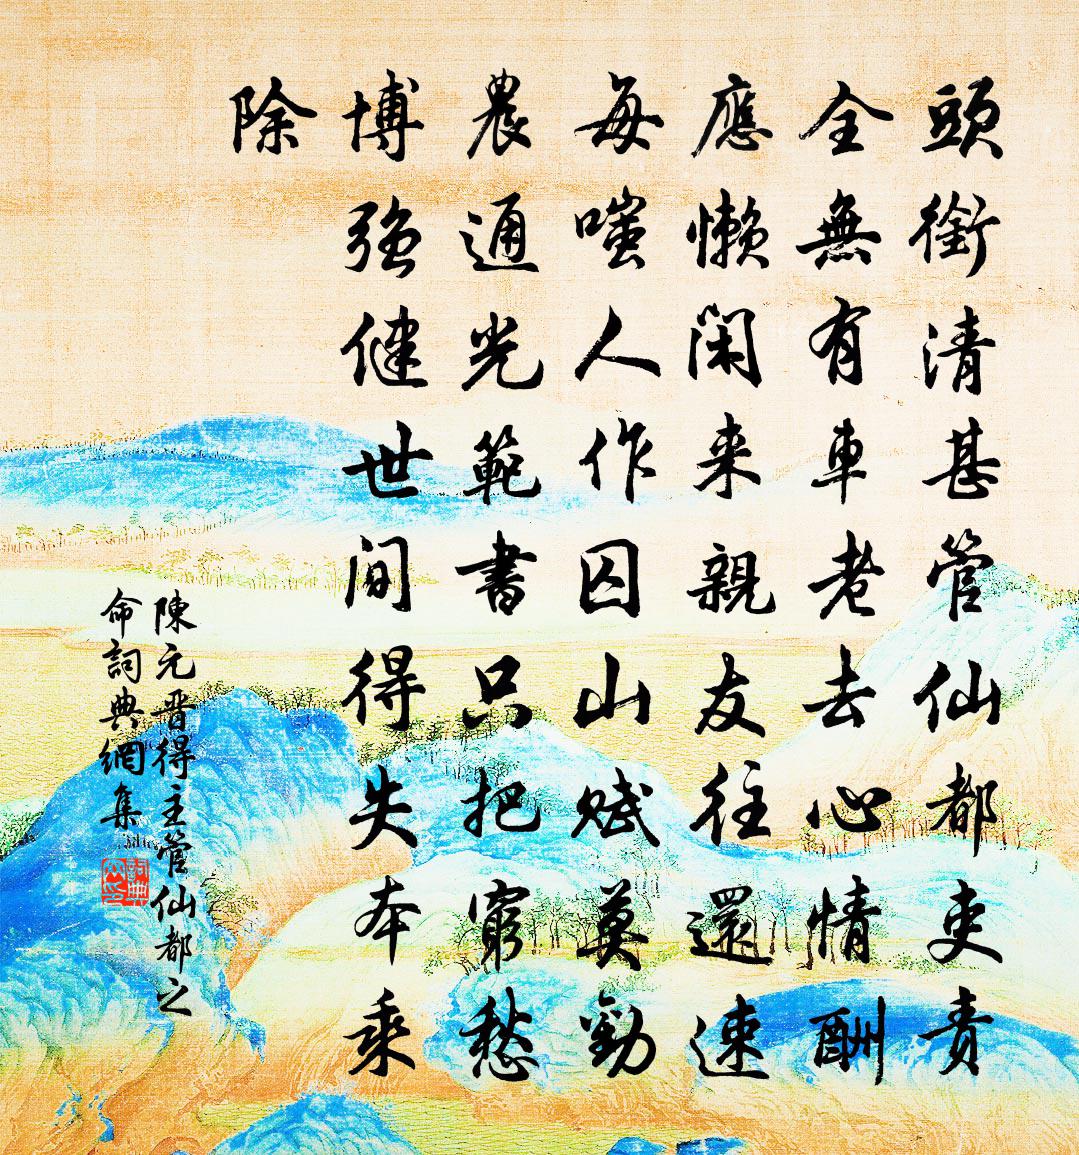 頭銜清甚管仙都吏責
全無有車老去心情酬
應懶閑来親友往還速
每嗤人作囚山賦莫勸
農通光範書只把窮愁
博強健世間得失本乘
除
陳元晋得主管仙都之
命詞典網集